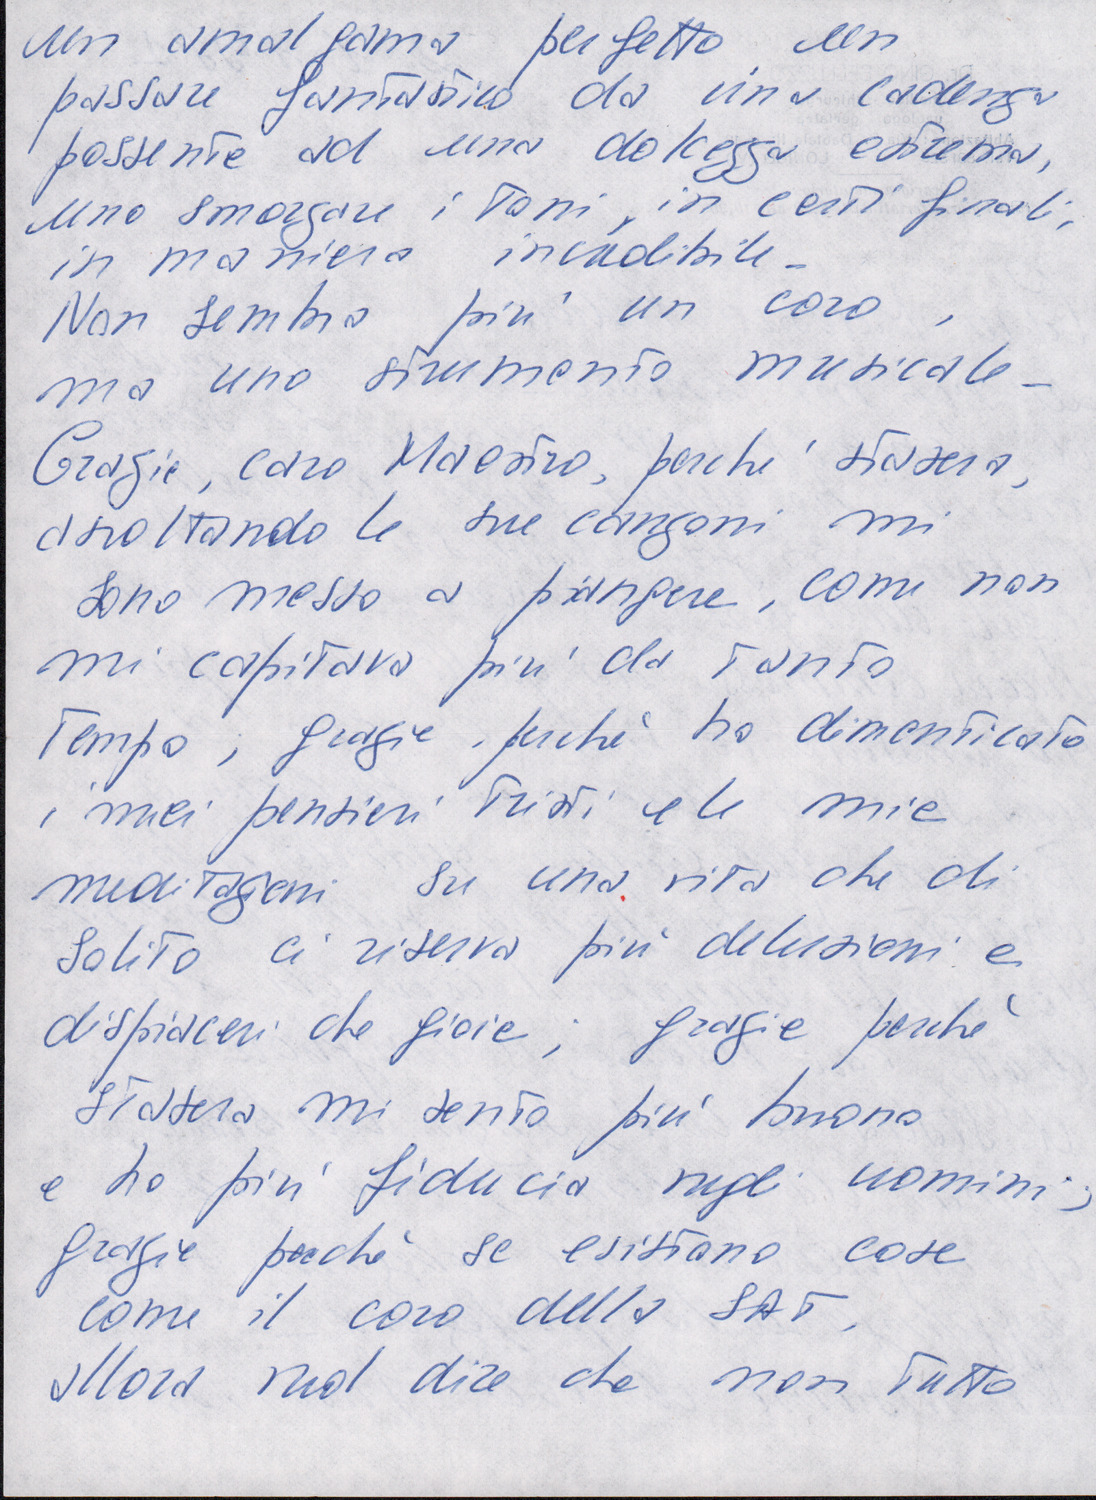 un amalgama perfetto un
passare fantastico da una cadenza
possente ad una dolcezza estrema,
uno smorzare i toni, in certi finali,
in maniera incredibile -
Non sembra più un coro,
ma uno strumento musicale -
Grazie, caro Maestro, perché stasera,
ascoltando le sue canzoni mi
sono messo a piangere, come non
mi capitava più da tanto
tempo; grazie perché ho dimenticato
i miei pensieri tristi e le mie
meditazioni su una vita che di
solito ci riserva più delusioni e
dispiaceri che gioie; grazie perché
stasera mi sento più buono
e ho più fiducia negli uomini;
grazie perché se esistono cose
come il coro della SAT,
allora vuol dire che non tutto